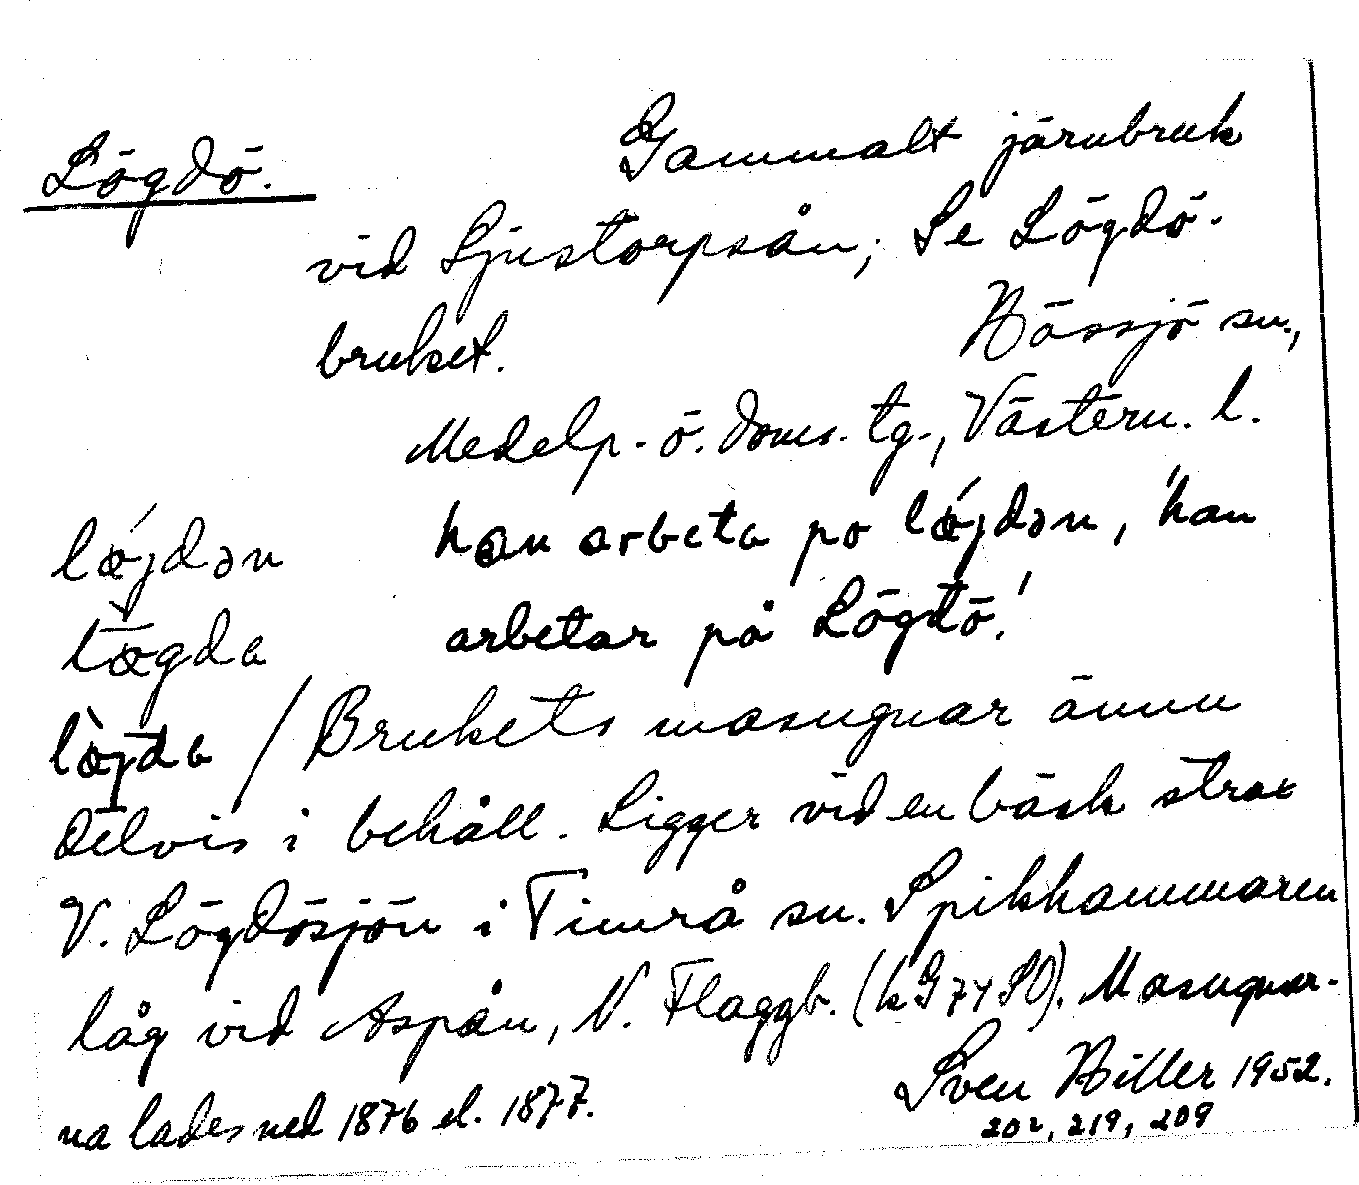 Lögdö.
Gammalt järnbruk
vid Ljustorpsån; Se Lögdö-
bruket.
Hässjö sn.,
Medelp. ö. doms. tg., Västern. l.
lǿjdən han arbeta po lǿjdən, 'han
lœ̄gda arbetar på Lögdö.'
lœ̀jda / Brukets masugnar ännu
delvis i behåll. Ligger vid en bäck strax
V. Lögdösjön i Timrå sn. Spikhammaren
låg vid Aspån, N. Flaggb. (kG 74 SO). Masugnar-
na lades ned 1876 el. 1877.
Sven Hiller 1952.
202, 219, 209